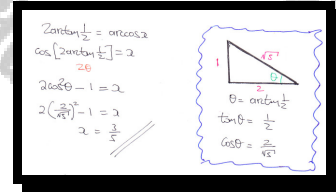 2arctan 1/2 = arccosx
cos[2arctan 1/2] = x
2θ
2cos²θ - 1 = x
2(2/√5)² - 1 = x
x = 3/5
1
√5
θ
2
θ = arctan 1/2
tanθ = 1/2
cosθ = 2/√5